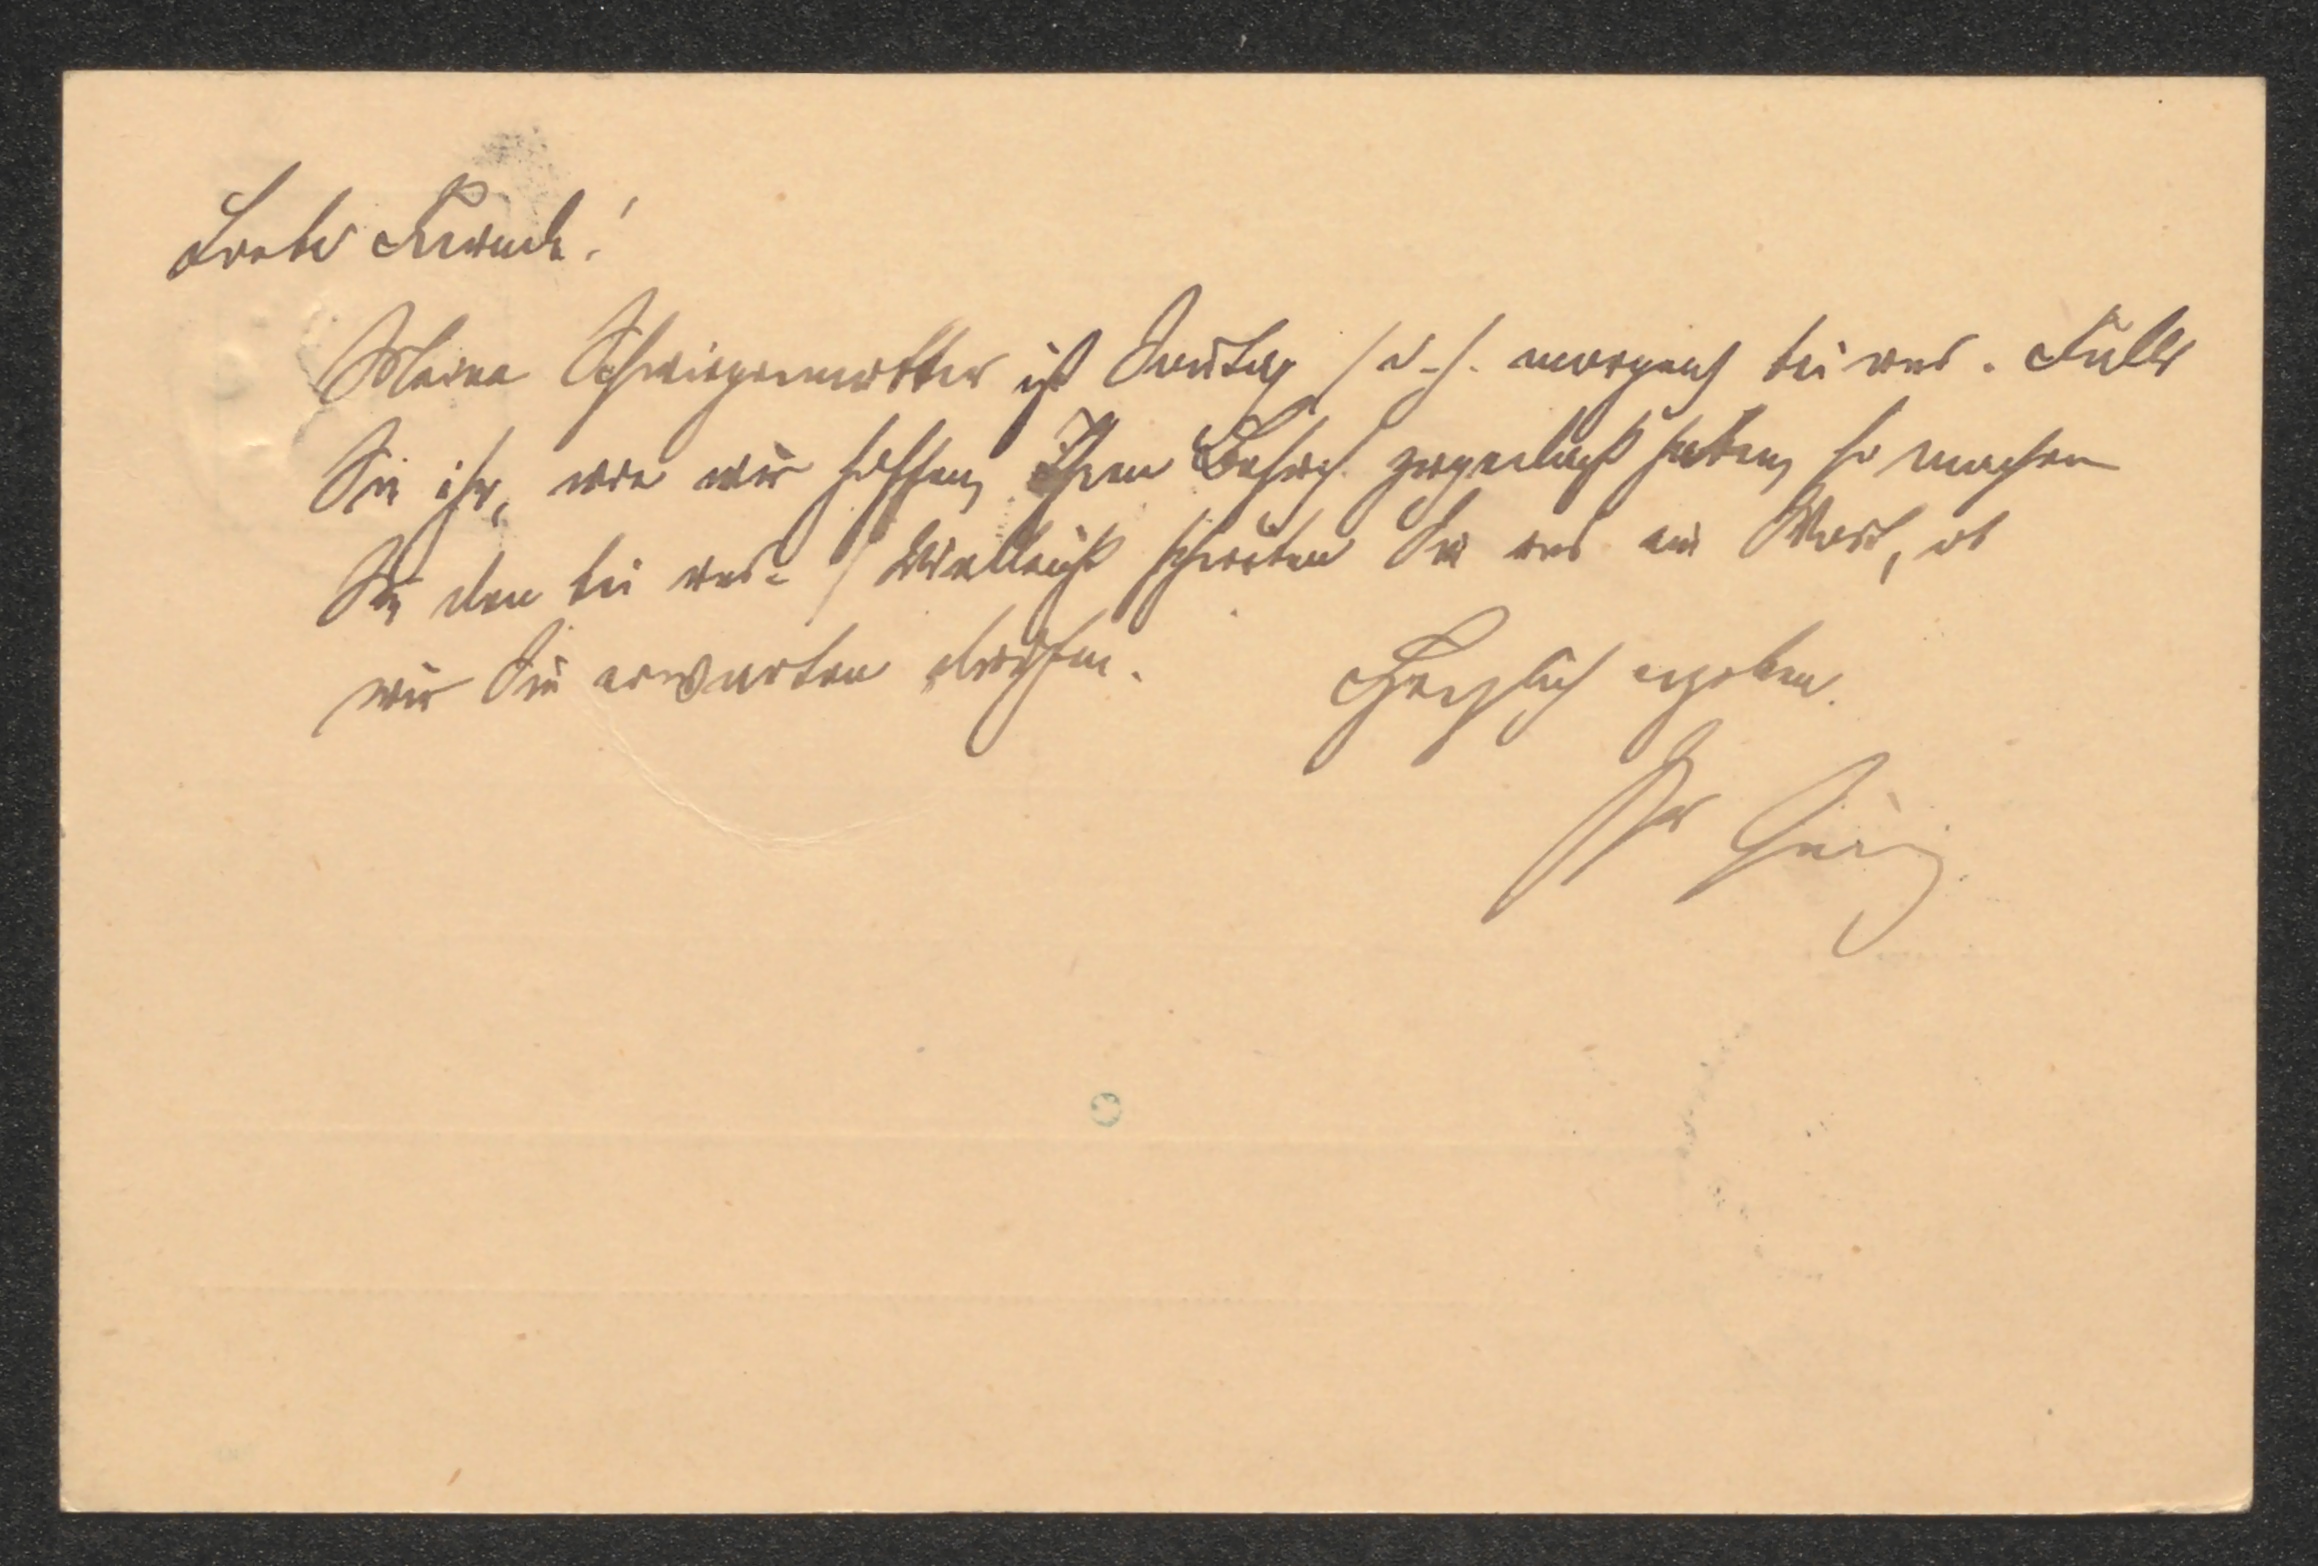 Liebe Freunde!
Meine Schwiegermutter ist Sonntag (d. h. morgen) bei uns. Falls
Sie ihr, wie wir hoffen, Ihren Besuch zugedacht haben, so machen
Sie den bei uns. Vielleicht schreiben Sie uns ein Wort, ob
wir Sie erwarten dürfen. Herzlich ergeben
Ihr